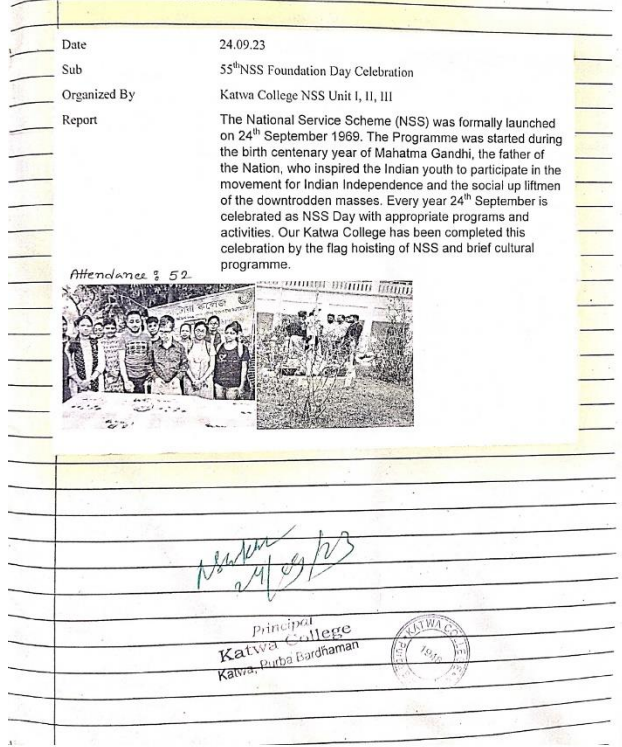 Date 24.09.23
Sub 55thNSS Foundation Day Celebration
Organized By Katwa College NSS Unit I, II, III
Report The National Service Scheme (NSS) was formally launched
on 24th September 1969. The Programme was started during
the birth centenary year of Mahatma Gandhi, the father of
the Nation, who inspired the Indian youth to participate in the
movement for Indian Independence and the social up liftmen
of the downtrodden masses. Every year 24th September is
celebrated as NSS Day with appropriate programs and
activities. Our Katwa College has been completed this
celebration by the flag hoisting of NSS and brief cultural
programme.
Attendance : 52
কলেজ
24/09/23
Principal
Katwa College
Katwa, Purba Bardhaman
KATWA COLLEGE
1948